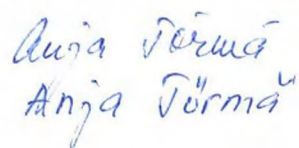 Anja Törmä
Anja Törmä